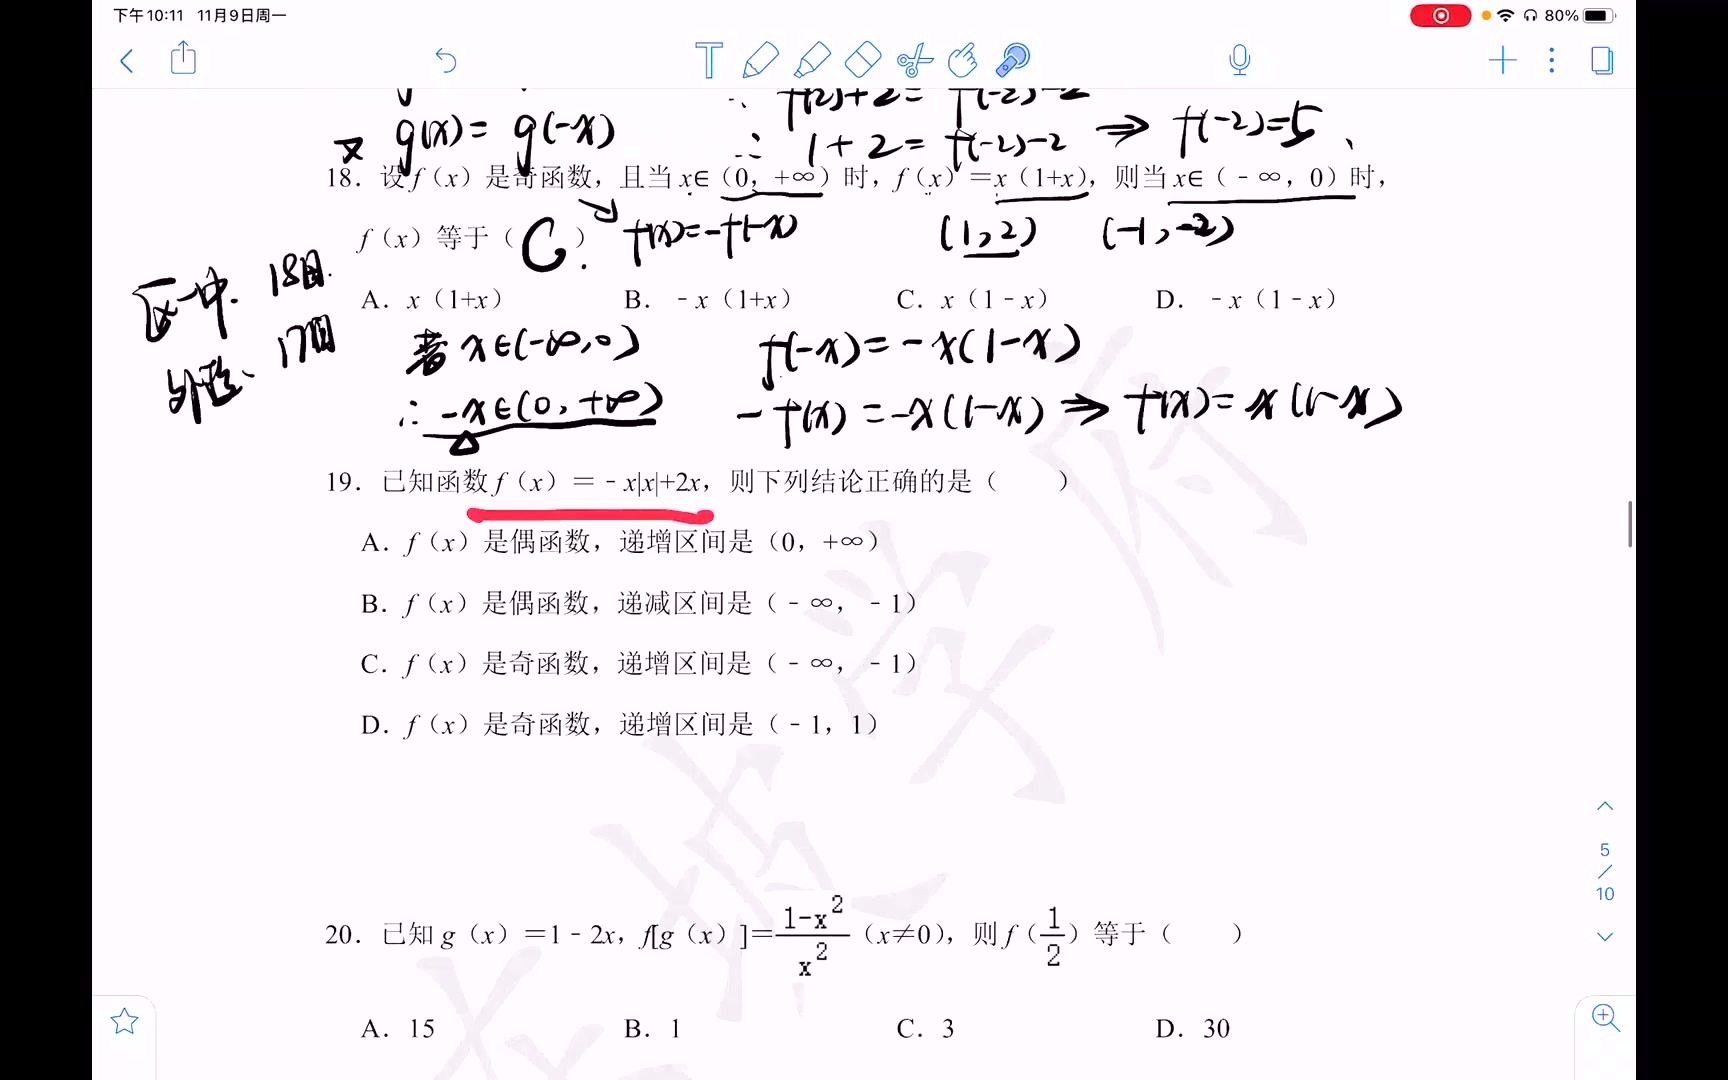 下午10:11 11月9日周一
80%
∴ f(2)+2= f(-2)-2
又 g(x)= g(-x) ∴ 1+2= f(-2)-2 ⇒ f(-2)=5、
18．设 f（x）是奇函数，且当 x∈（0，+∞）时，f（x）＝x（1+x），则当 x∈（﹣∞，0）时，
f（x）等于（ C ） f(x)=-f(-x) (1,2) (-1,-2)
区一中. 18日.
17日
A．x（1+x） B．﹣x（1+x） C．x（1﹣x） D．﹣x（1﹣x）
若 x∈(-∞,0) f(-x)= -x(1-x)
∴ -x∈(0,+∞) -f(x)=-x(1-x) ⇒ f(x)= x(1-x)
19．已知函数 f（x）＝﹣x|x|+2x，则下列结论正确的是（ ）
A．f（x）是偶函数，递增区间是（0，+∞）
B．f（x）是偶函数，递减区间是（﹣∞，﹣1）
C．f（x）是奇函数，递增区间是（﹣∞，﹣1）
D．f（x）是奇函数，递增区间是（﹣1，1）
5
/
10
20．已知 g（x）＝1﹣2x，f[g（x）]＝(1-x^2)/x^2（x≠0），则 f（1/2）等于（ ）
A．15 B．1 C．3 D．30